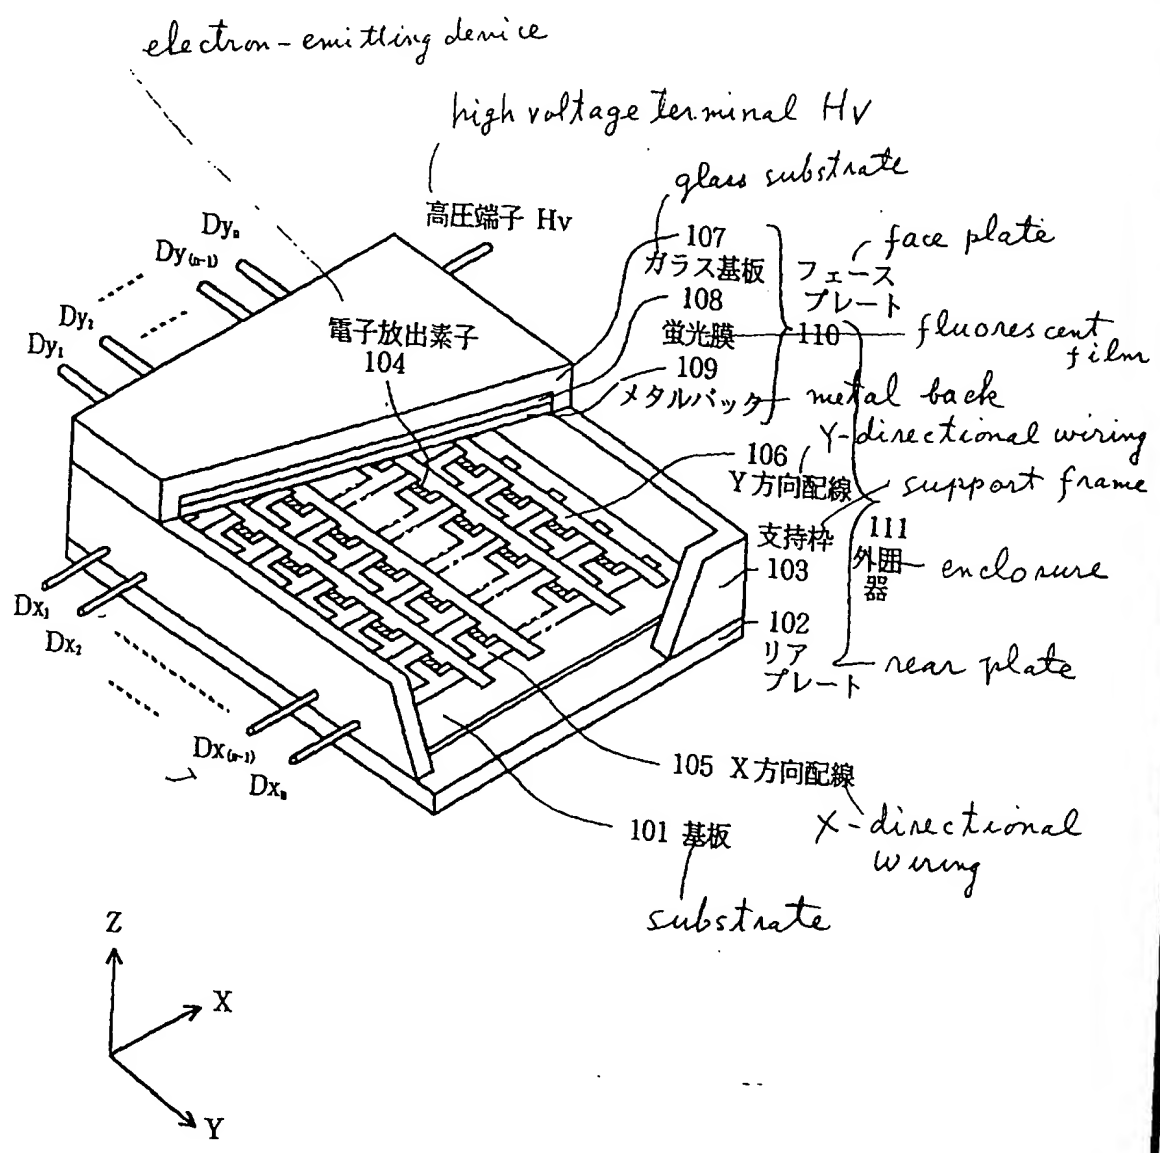 electron-emitting device
high voltage terminal Hv
glass substrate
高圧端子 Hv
Dyn
Dy(n-1)
Dy2
Dy1
107
ガラス基板
face plate
フェース
プレート
108
蛍光膜
110
fluorescent
film
電子放出素子
104
109
メタルバック
metal back
Y-directional wiring
106
Y方向配線
support frame
支持枠
103
111
外囲
器
enclosure
102
リア
プレート
rear plate
Dx1
Dx2
Dx(n-1)
Dxn
105 X方向配線
X-directional
wiring
101 基板
substrate
Z
X
Y